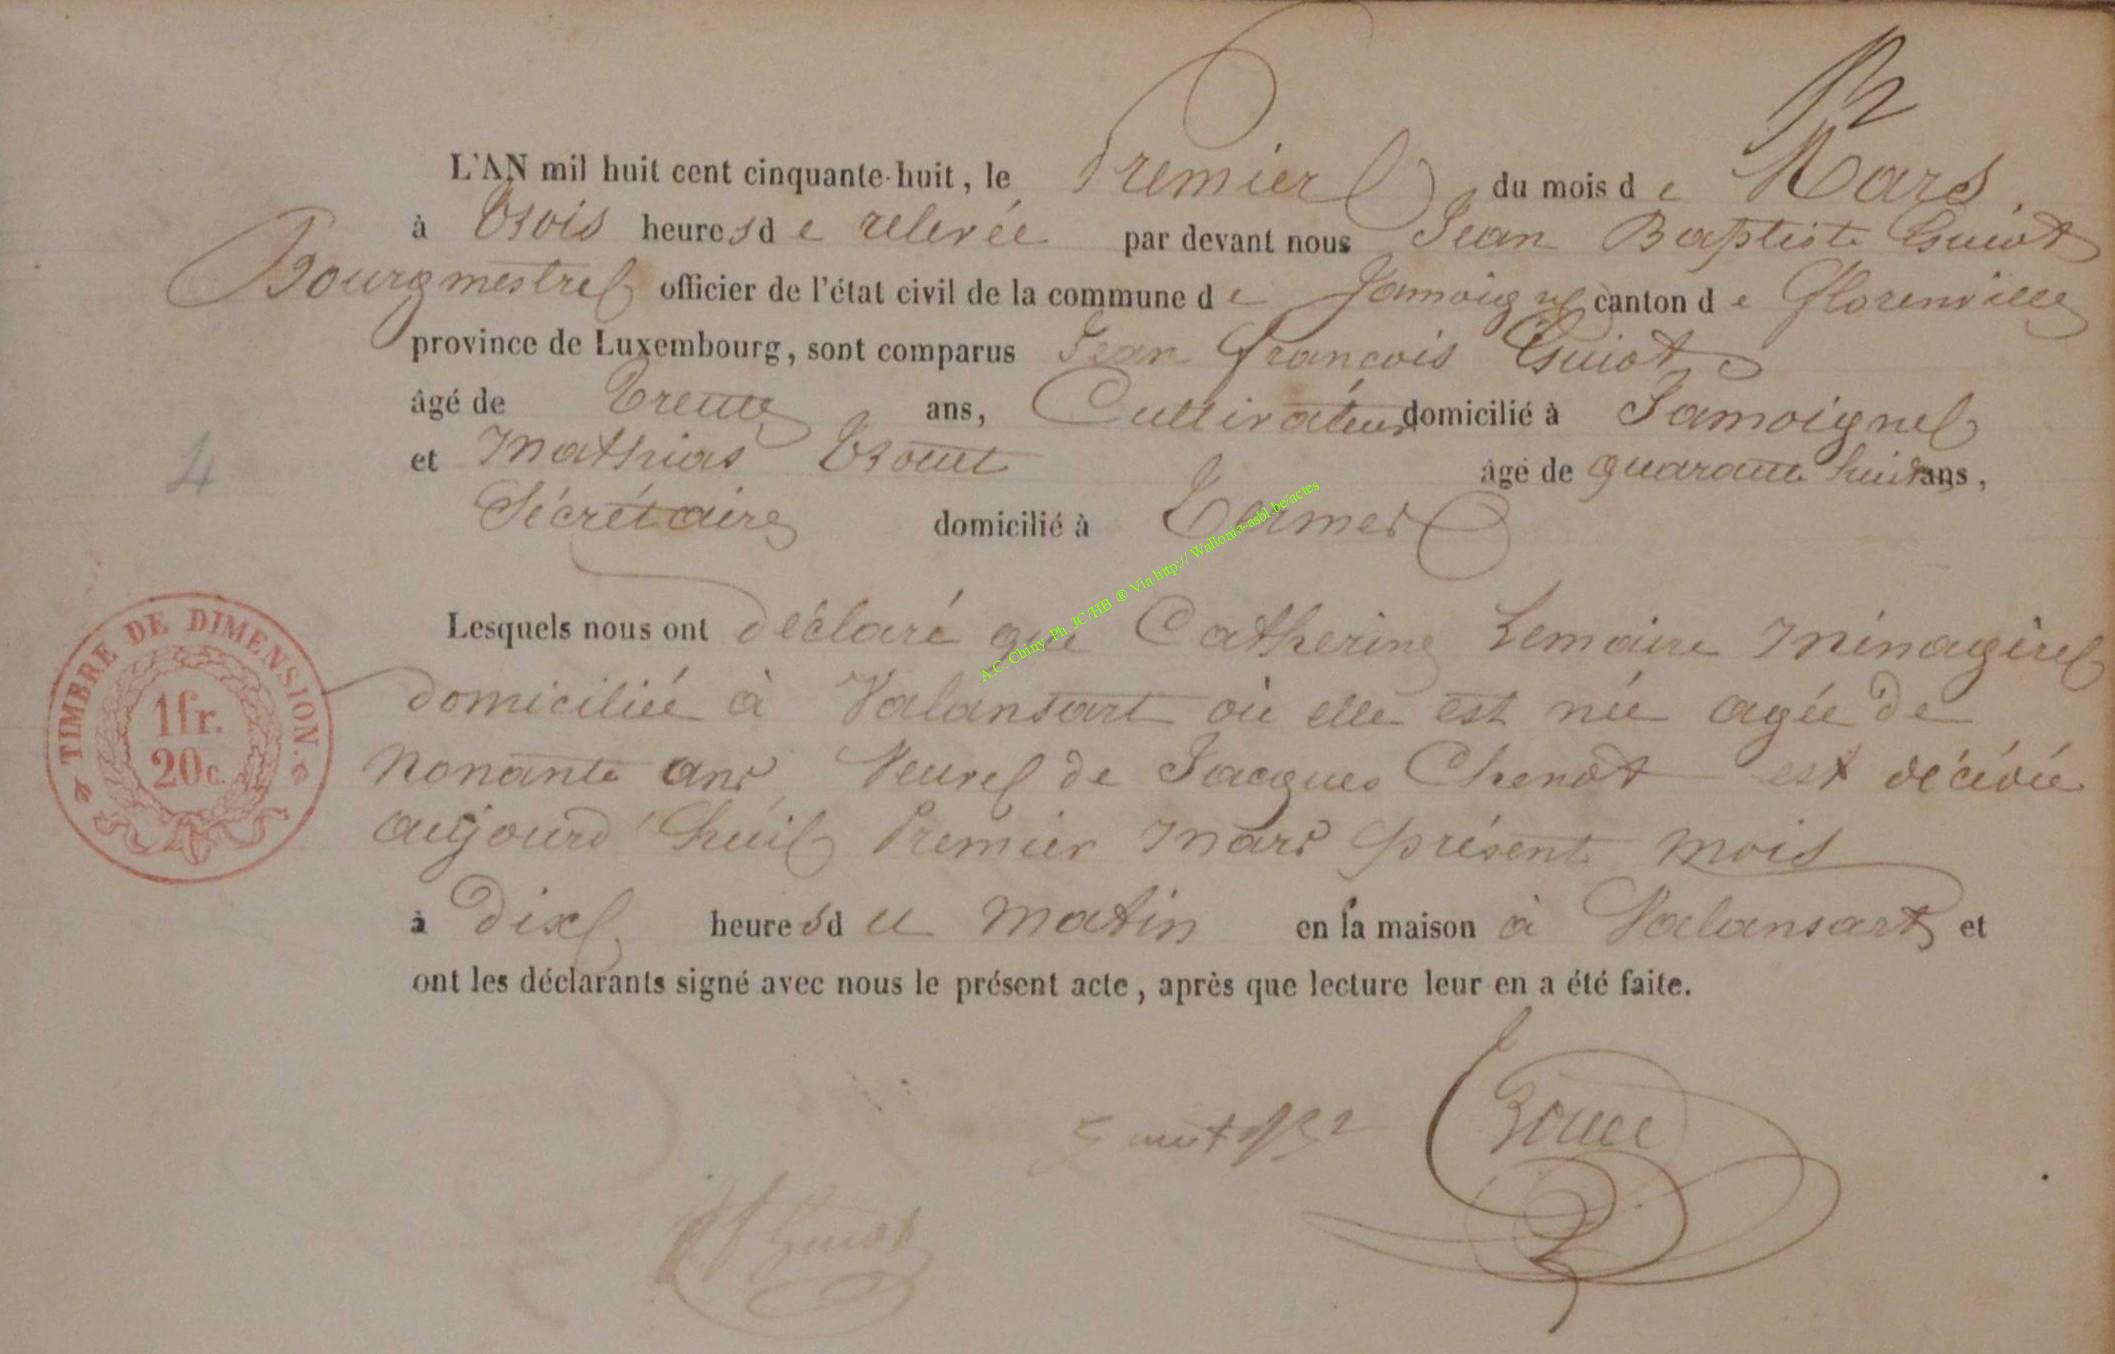 L'AN mil huit cent cinquante-huit, le Premier du mois de Mars
à trois heures de relevée par devant nous Jean Baptiste Guiot
Bourgmestre officier de l'état civil de la commune de Jamoigne canton de Florenville
province de Luxembourg, sont comparus Jean François Guiot
âgé de trente ans, Cultivateur domicilié à Jamoigne
et Mathias âgé de quarante huit ans,
4
Sécrétaire domicilié à Termes
Lesquels nous ont déclaré que Catherine Lemaire Ménagère
domiciliée à Valansart où elle est née agée de
nonante ans Veuve de Jacques Chenot est décédée
aujourd'hui Premier Mars présent mois
à dix heures du matin en la maison à Valansart et
ont les déclarants signé avec nous le présent acte, après que lecture leur en a été faite.
TIMBRE DE DIMENSION.
1fr.
20c.
A.C Chiny Ph JC/HB ® Via http://Wallonia-asbl.be/actes
Guiot